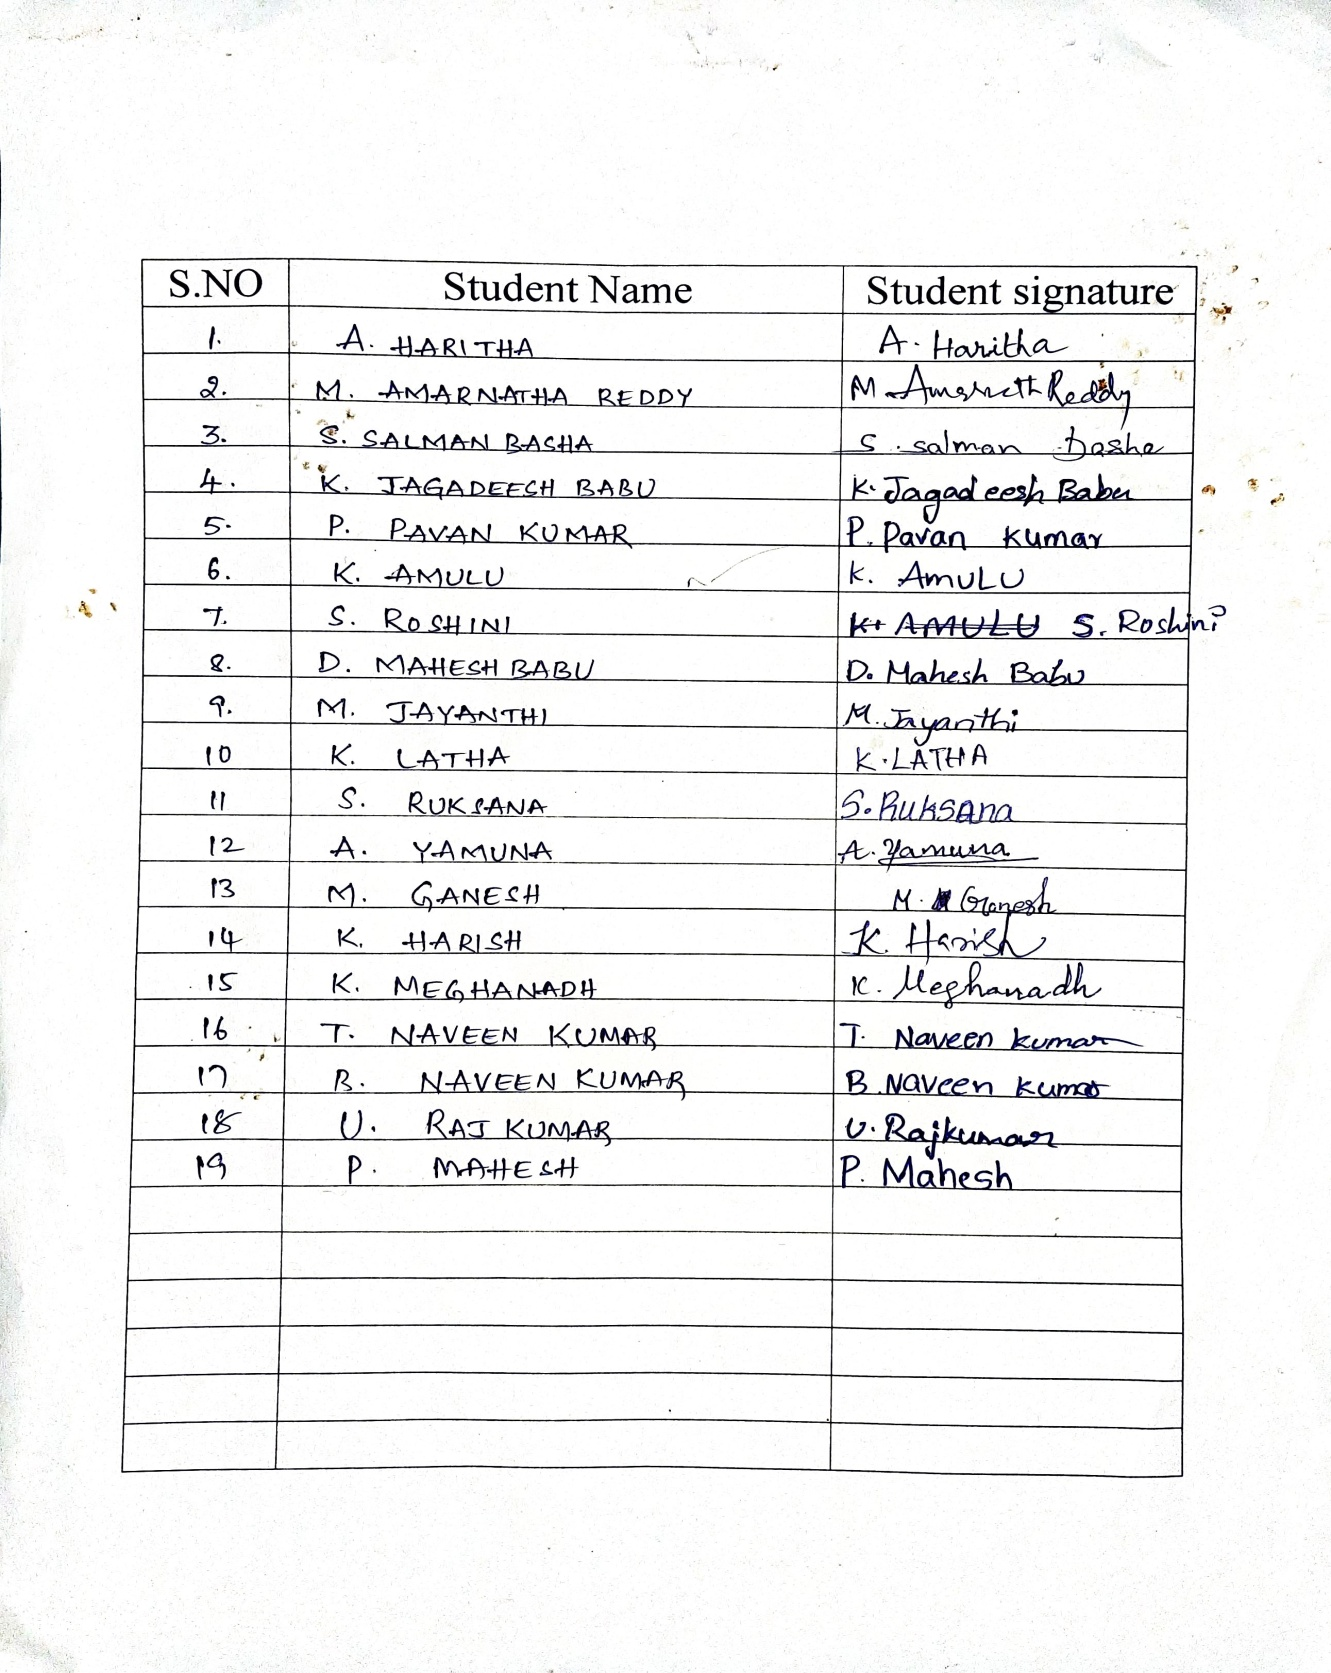 S.NO Student Name Student signature
1. A. HARITHA A. Haritha
2. M. AMARNATHA REDDY M Amarnath Reddy
3. S. SALMAN BASHA S. salman basha
4. K. JAGADEESH BABU K. Jagadeesh Babu
5. P. PAVAN KUMAR P. Pavan Kumar
6. K. AMULU K. AMULU
7. S. ROSHINI K. AMULU S. Roshini
8. D. MAHESH BABU D. Mahesh Babu
9. M. JAYANTHI M. Jayanthi
10 K. LATHA K. LATHA
11 S. RUKSANA S. Ruksana
12 A. YAMUNA A. Yamuna
13 M. GANESH M. Ganesh
14 K. HARISH K. Harish
15 K. MEGHANADH K. Meghanadh
16 T. NAVEEN KUMAR T. Naveen kumar
17 B. NAVEEN KUMAR B. Naveen kumar
18 U. RAJ KUMAR U. Rajkumar
19 P. MAHESH P. Mahesh